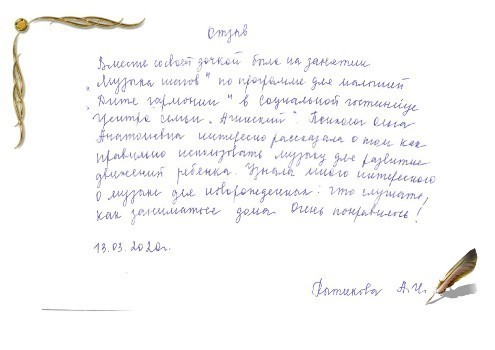 Отзыв
Вместе со своей дочкой была на занятии
„Музыка шагов" по программе для малышей
„Дитя гармонии" в социальной гостинице
Центра семьи „Ачинский". Психолог Ольга
Анатольевна интересно рассказала о том как
правильно использовать музыку для развития
движений ребенка. Узнала много интересного
о музыке для новорожденных: что слушать,
как заниматься дома. Очень понравилось!
13.03.2020г.
А.И.